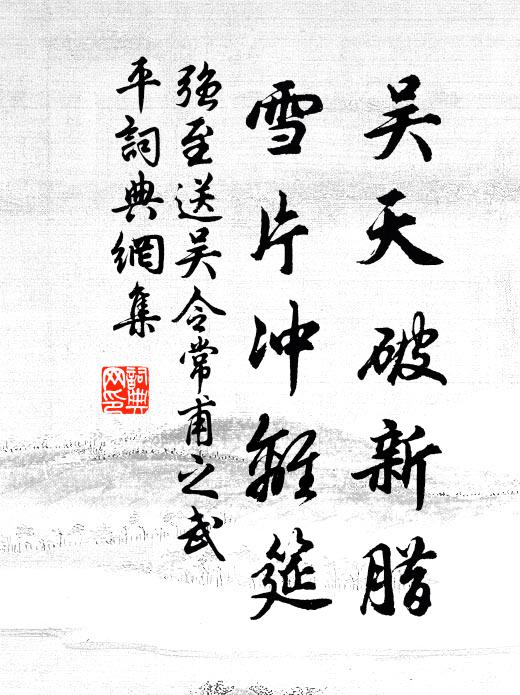 吴天破新腊
雪片冲離筵
強至送吴令常甫之武
平詞典網集
詞典
网印